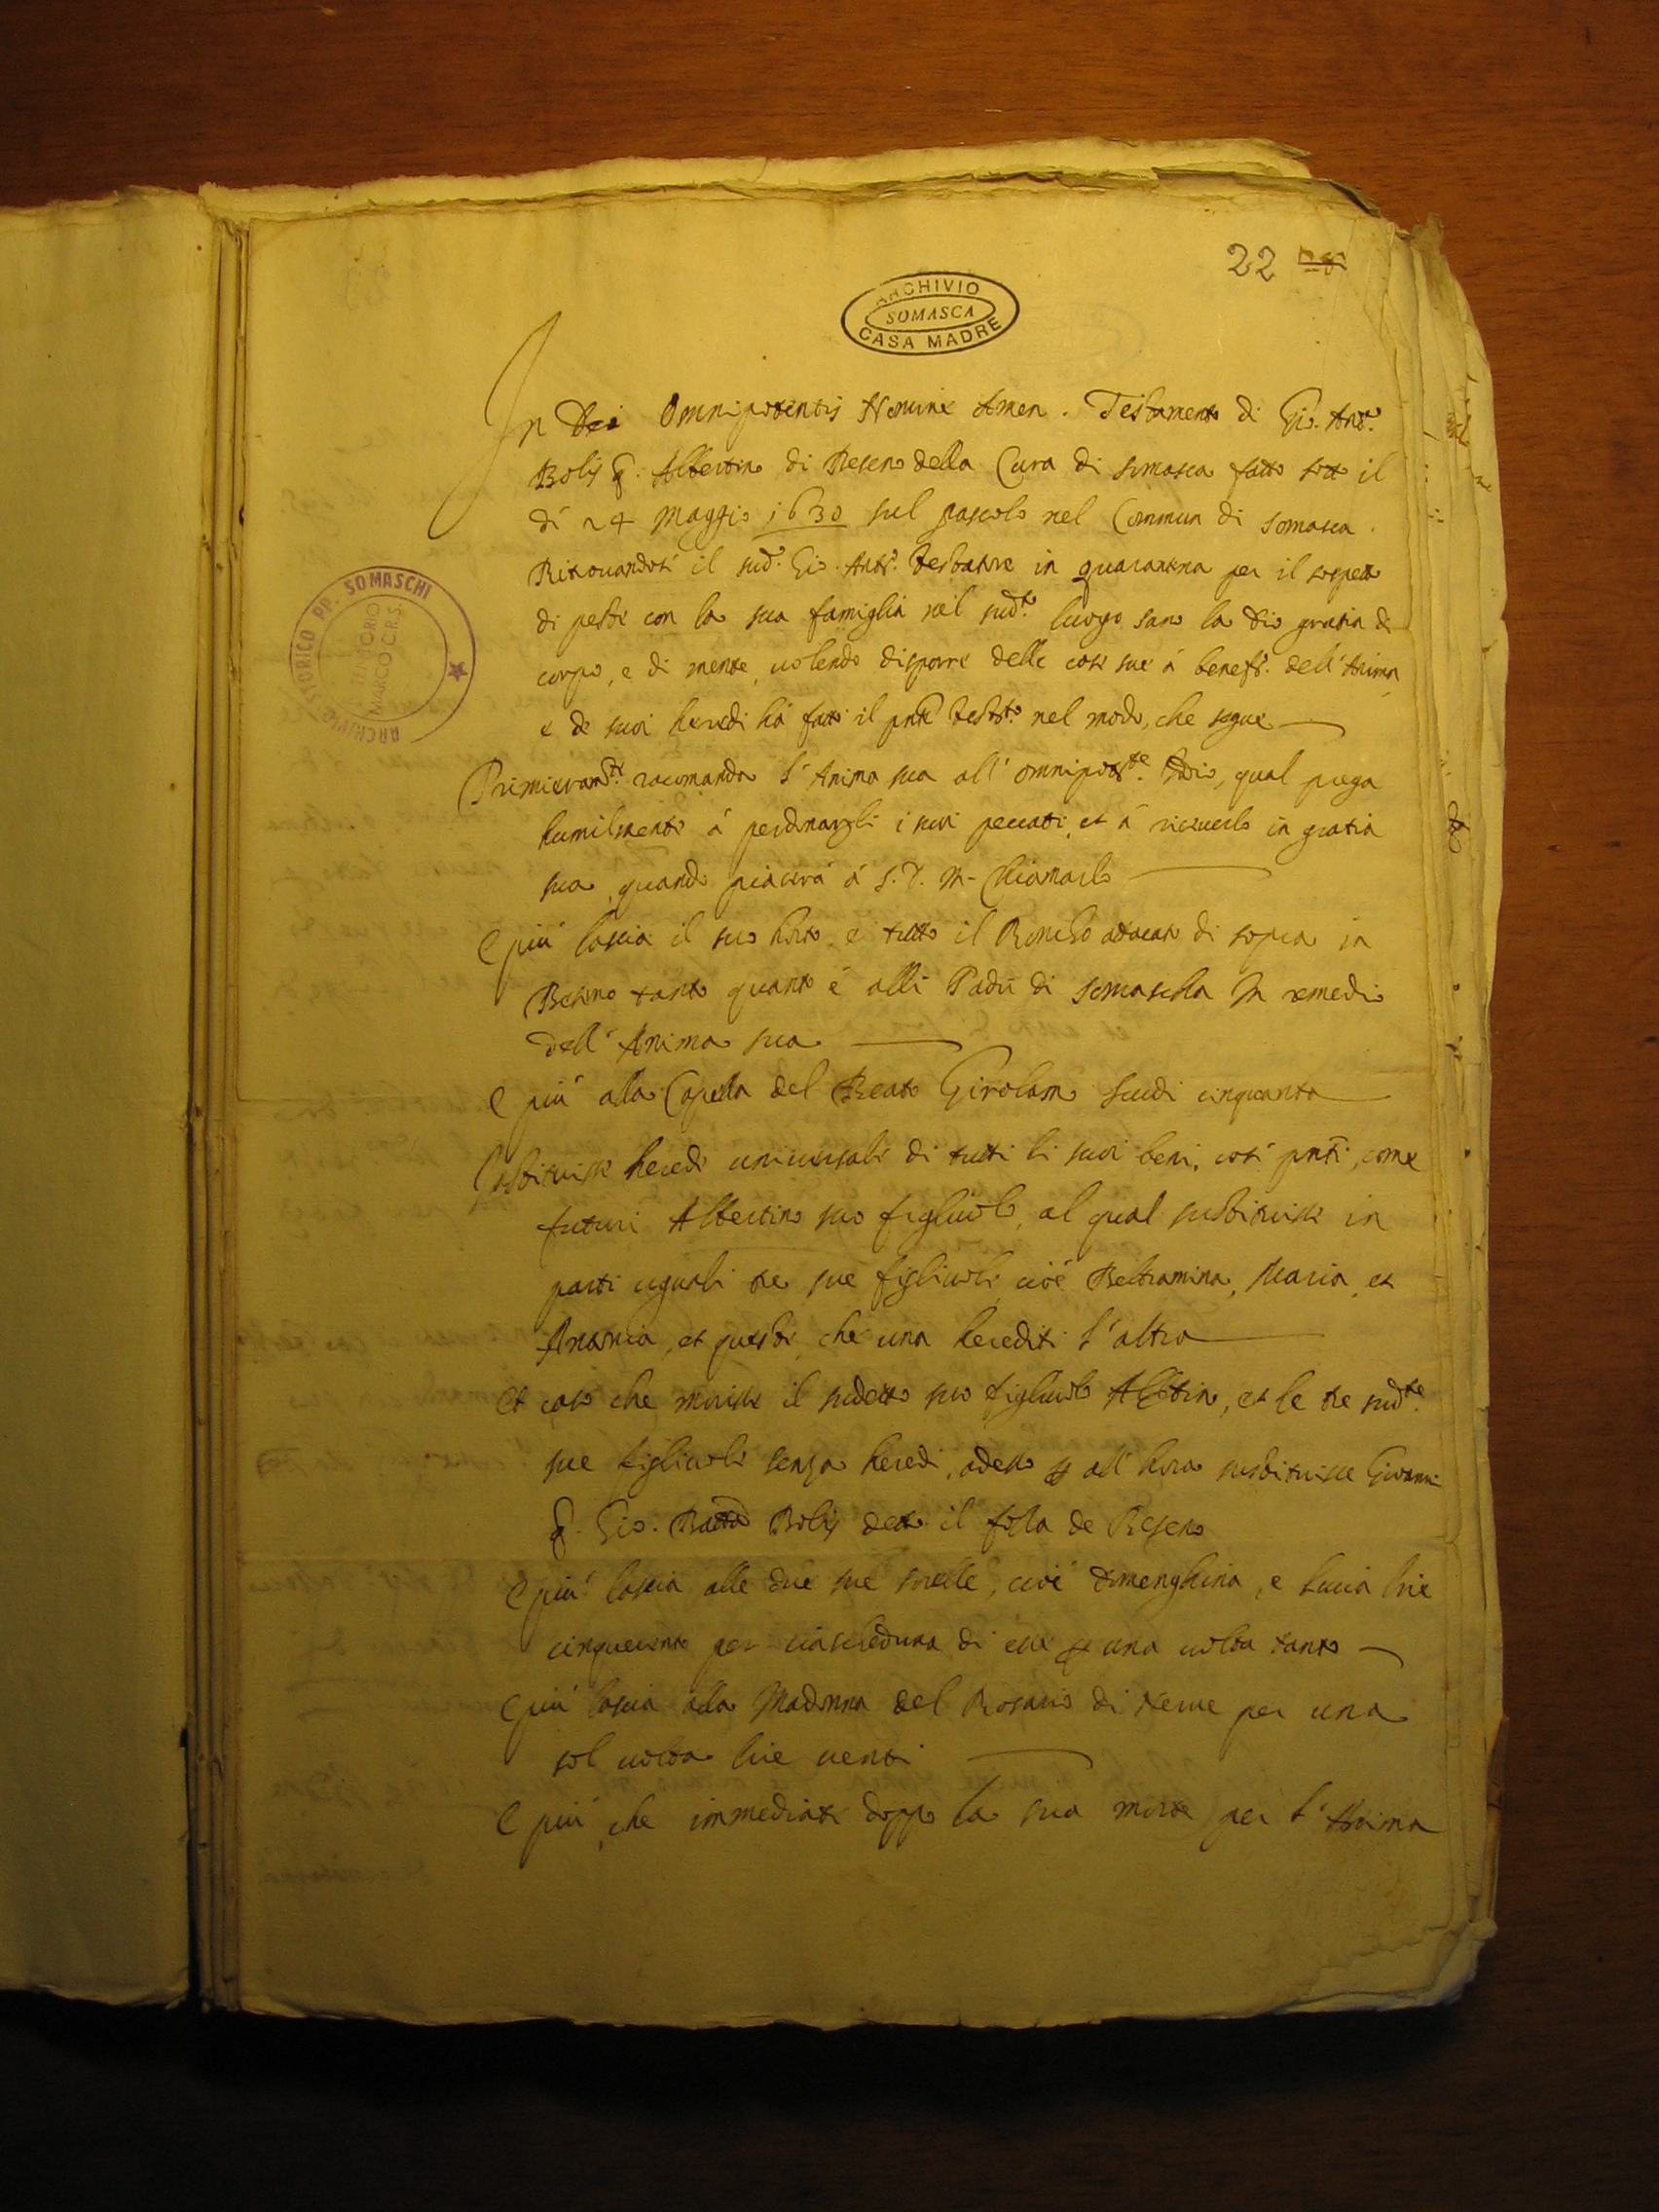 22
ARCHIVIO
SOMASCA
CASA MADRE
ARCHIVIO STORICO PP. SOMASCHI
TENTORIO
MARCO C.R.S.
In Dei Omnipotentis Nomine Amen. Testamento di Gio. Ant.o
Bolis q. Albertino di Beseno della Cura di Somasca fatto sotto il
dì 24 Maggio 1630 sul pascolo nel Commun di Somasca.
Ritrouandosi il sud.o Gio. Ant.o testatore in quarantena per il sospetto
di peste con la sua famiglia nel sud.o luogo sano la Dio gratia di
corpo, e di mente, uolendo disporre delle cose sue à benef.o dell'Anima
e de suoi heredi hà fatto il pnte testo.to nel modo, che segue
Primieram.te racomanda l'Anima sua all'omnipot.te Iddio, qual prega
humilmente à perdonargli i suoi peccati, et à riceuerlo in gratia
sua, quando piacerà à S. D. M. Chiamarlo
E più lascia il suo horto, e tutto il Roncho di sopra in
Beseno tanto quanto è alli Padri di Somascha in remedio
dell'Anima sua
E più alla Capella del Beato Girolamo scudi cinquanta
Instituisse herede uniuersale di tutti li suoi beni, così pnti, come
futuri Albertino suo figliuolo, al qual substituisse in
parti uguali tre sue figliuole, cioè Beltramina, Maria, et
Antonia, et queste, che una herediti l'altra
Et caso che morisse il sudetto suo figliuolo Albertino, et le tre sud.te
sue figliuole senza heredi, adesso p all'hora substituisse Giouanni
q. Gio. Batta Bolis detto il de Beseno
E più lascia alle due sue sorelle, cioè Domenghina, e Lucia lire
cinquecento per ciascheduna di esse p una uolta tanto
E più lascia alla Madonna del Rosario di per una
sol uolta lire uenti
E più, che immediate doppo la sua morte per l'Anima